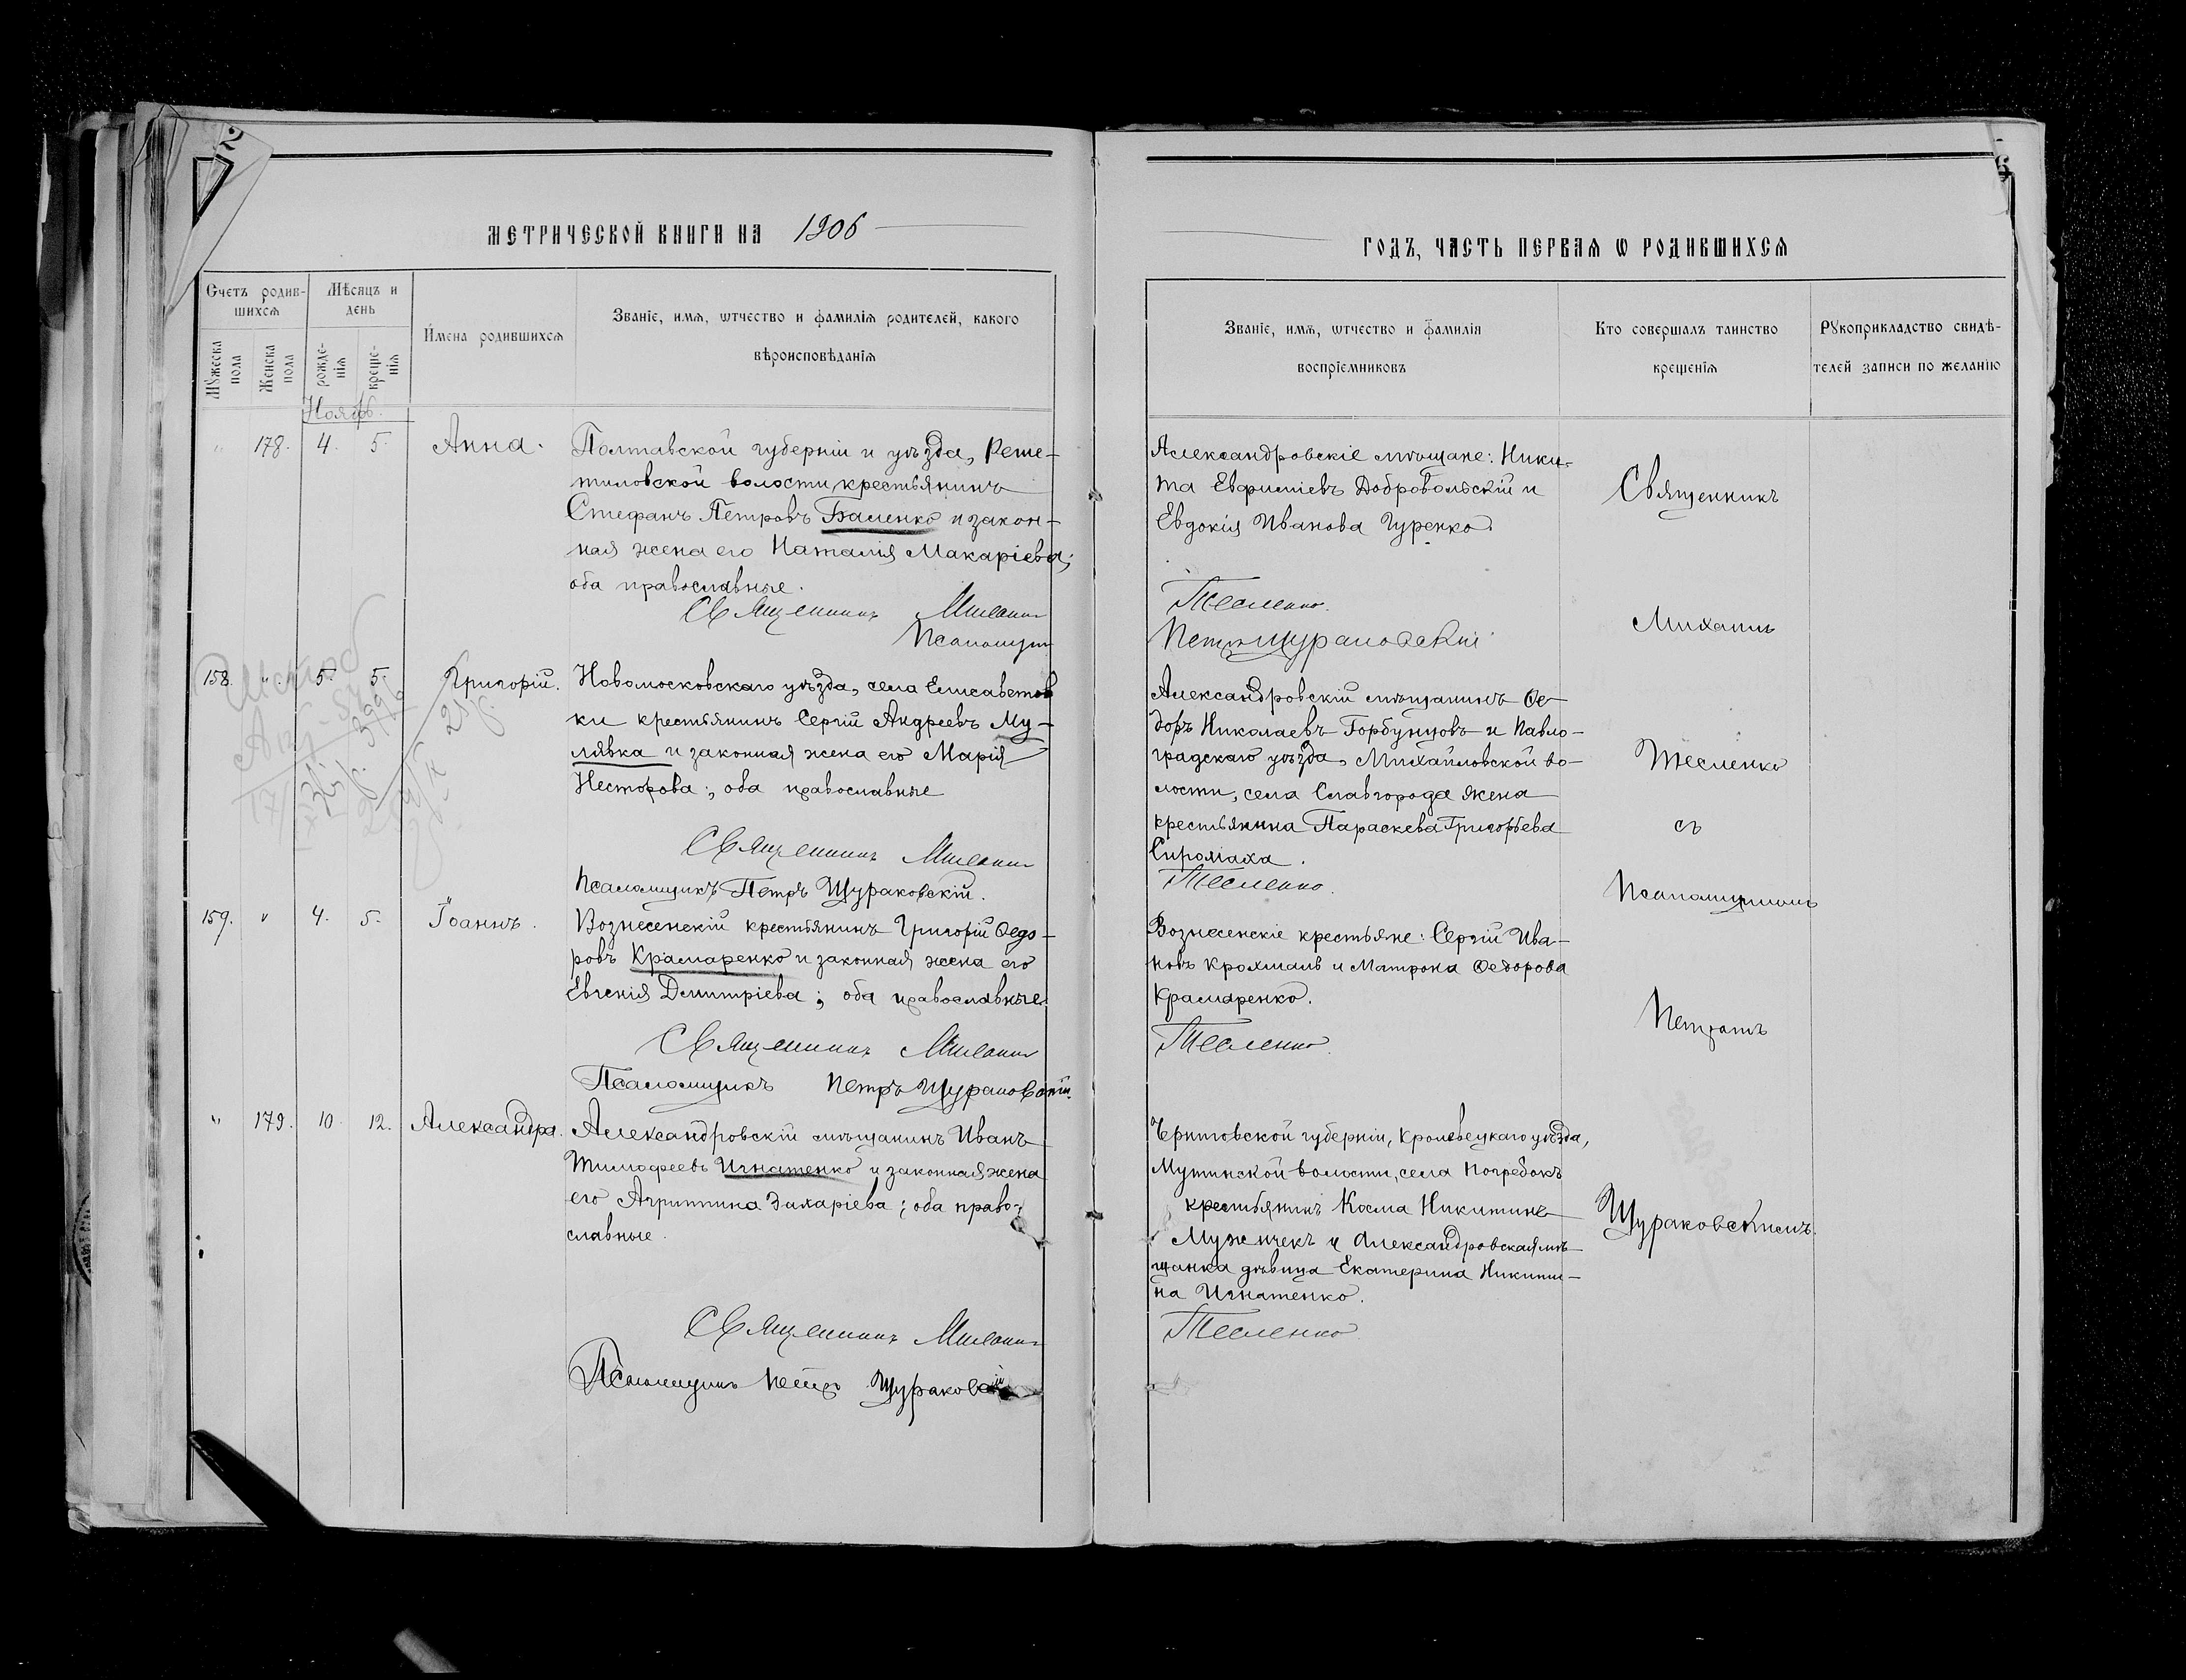 МЕТРИЧЕСКОЙ КНИГИ НА 1906
ГОДЪ, ЧАСТЬ ПЕРВАѦ Ѡ РОДИВШИХСѦ
Счетъ родив-
шихсѧ
Мѣсяцъ и
день
Мужеска
пола
Женска
пола
рожде-
нія
креще-
нія
Имена родившихсѧ
Званіе, имѧ, ѿчество и фамиліѧ родителей, какого
вѣроисповѣданіѧ
Званіе, имѧ, ѿчество и фамиліѧ
воспріемниковъ
Кто совершалъ таинство
крещеніѧ
Рукоприкладство свидѣ-
телей записи по желанію
Ноябрь.
" 178. 4. 5. Анна.
Полтавской губерніи и уѣзда, Реше-
тиловской волости, крестьянинъ
Стефанъ Петровъ Баленко и закон-
ная жена его Наталія Макаріева;
оба православные.
Священникъ Михаилъ
Псаломщ
Александровскіе мѣщане: Ники-
та Евфиміевъ Добровольскій и
Евдокія Иванова Гуренко.
Тесленко.
Петръ Щураковскій
158. " 5. 5. Григорій.
Новомосковскаго уѣзда, села Елисаветов
ки крестьянинъ Сергій Андреевъ Му-
лявка и законная жена его Марія
Несторова; оба православные
Священникъ Михаилъ
Псаломщикъ Петръ Щураковскій.
Александровскій мѣщанинъ Ѳе-
доръ Николаевъ Горбунцовъ и Павло-
градскаго уѣзда, Михайловской во-
лости, села Славгорода жена
крестьянина Параскева Григорьева
Сиромаха.
Тесленко.
159. " 4. 5. Іоаннъ.
Вознесенскій крестьянинъ Григорій Ѳедо-
ровъ Крамаренко и законная жена его
Евгенія Димитріева; оба православные.
Священникъ Михаилъ
Псаломщикъ Петръ Щураковскій.
Вознесенскіе крестьяне: Сергій Ива-
новъ Крохмаль и Матрона Ѳедорова
Крамаренко.
Тесленко.
" 179. 10. 12. Александра.
Александровскій мѣщанинъ Иванъ
Тимофеевъ Игнатенко и законная жена
его Агриппина Захаріева; оба право-
славные.
Священникъ Михаилъ
Псаломщикъ Петръ Щураковскій
Черниговской губерніи, Кролевецкаго уѣзда,
Мутинской волости, села Погребокъ
крестьянинъ Косма Никитинъ
Мужичекъ и Александровская мѣ
щанка дѣвица Екатерина Никити-
на Игнатенко.
Тесленко
Священникъ
Михаилъ
Тесленко
съ
Псаломщикомъ
Петромъ
Щураковскимъ.